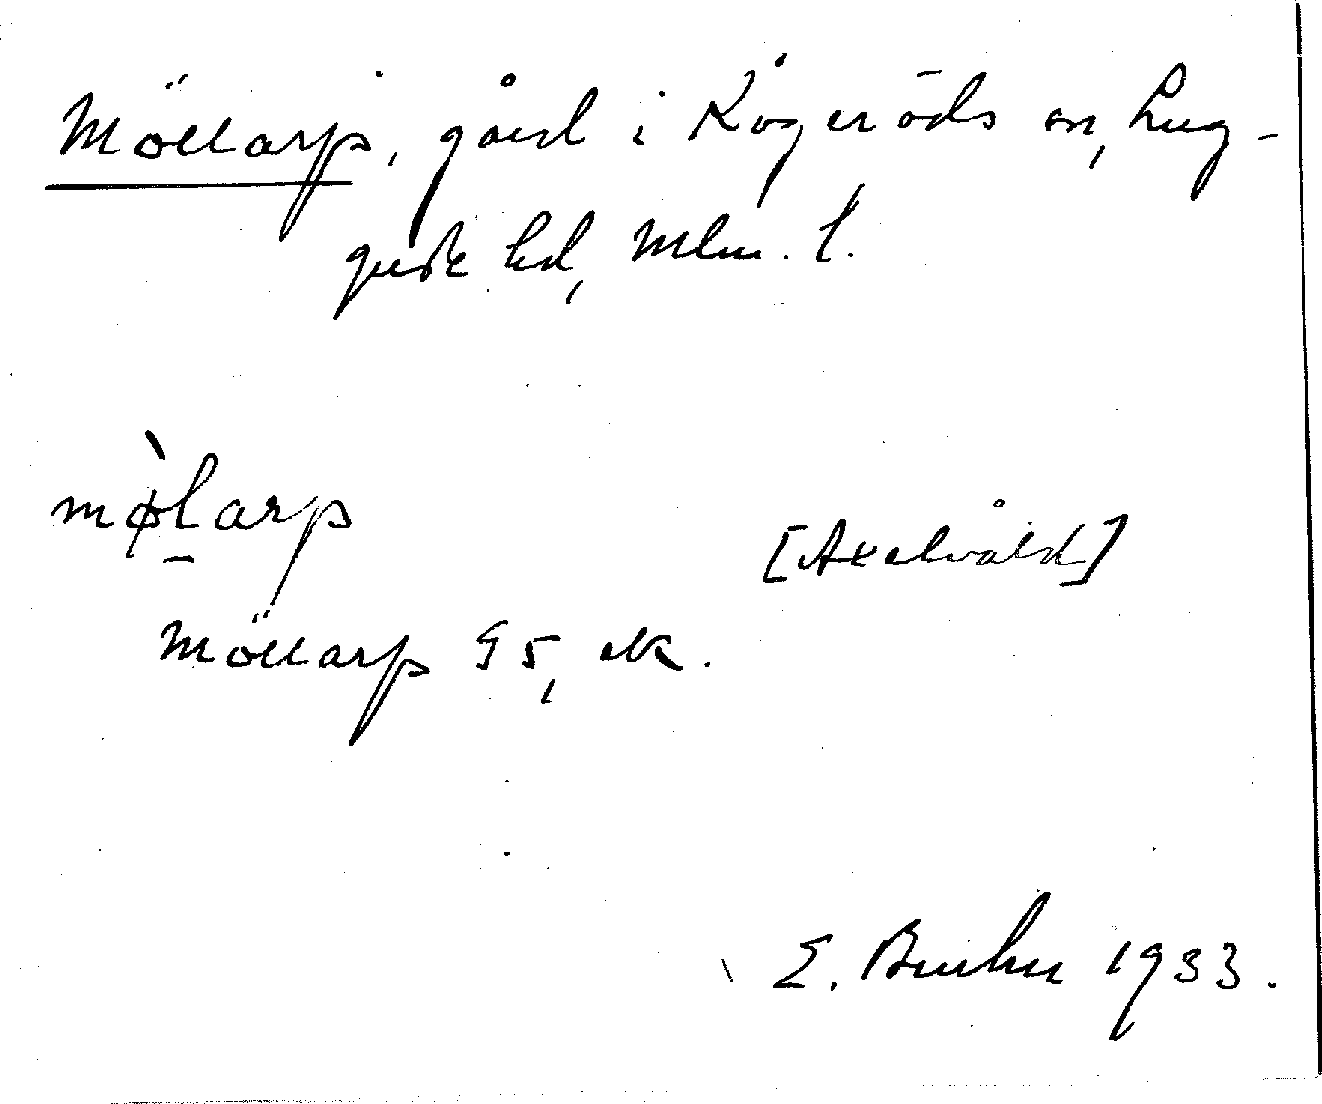 Möllarp, gård i Kågeröds sn, Lug-
gude hd, Mlm. l.
mø̀l̲arp
[Axelvåld]
Möllarp 95, ek.
E. Bruhn 1933.